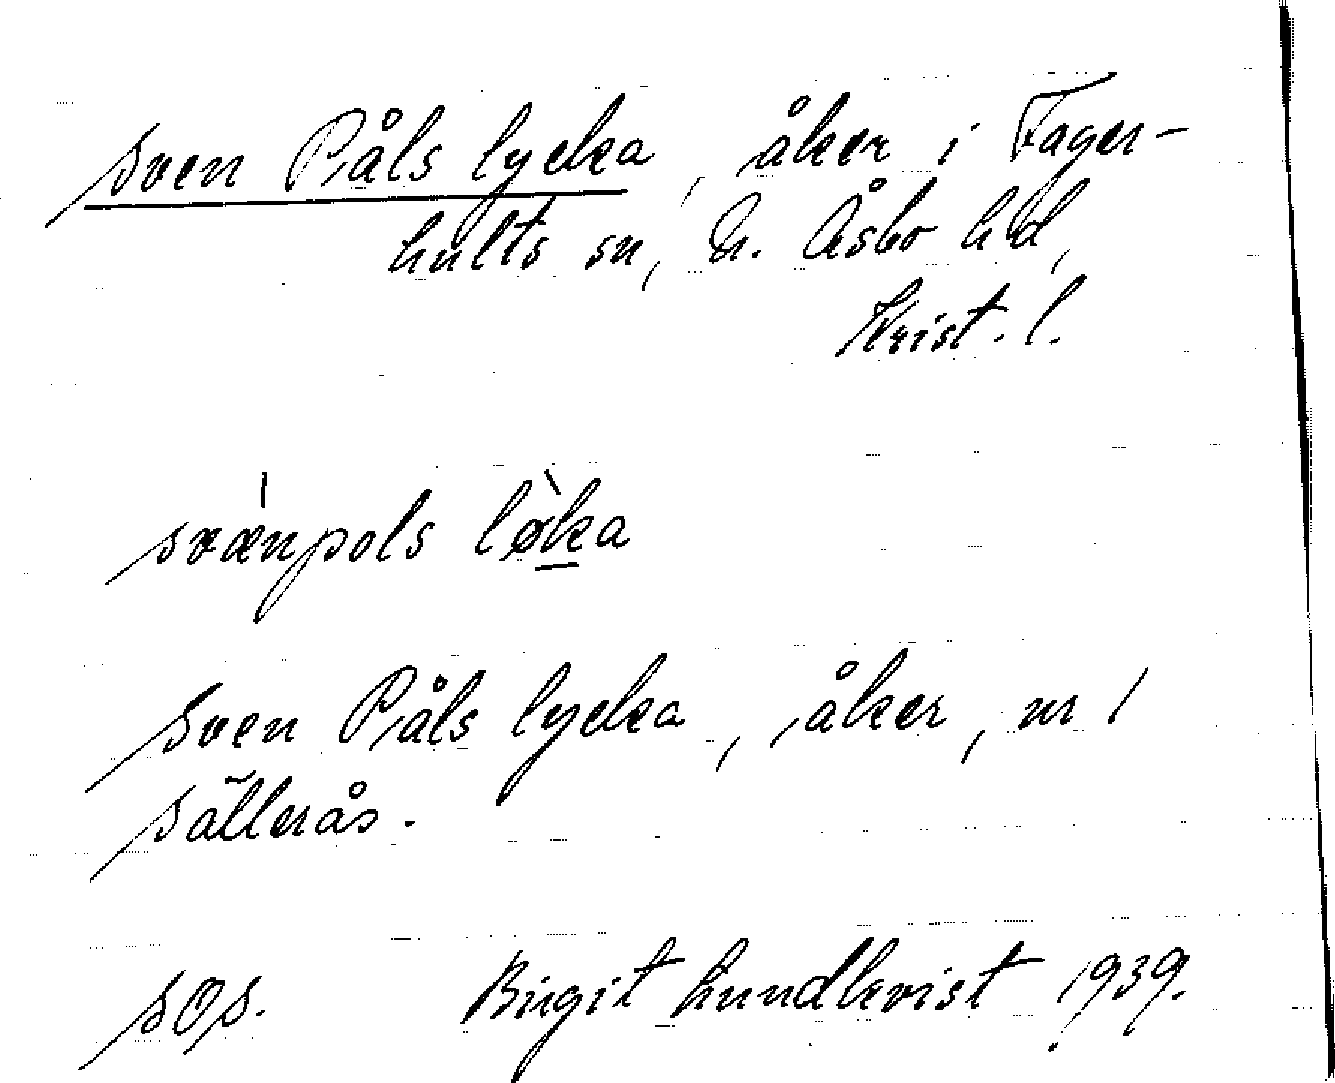 Sven Påls lycka, åker i Fager-
hults sn, N. Åsbo hd,
Krist. l.
svænpols løka
Sven Påls lycka, åker, nr 1
Sällerås.
SOS. Birgit Lundkvist 1939.